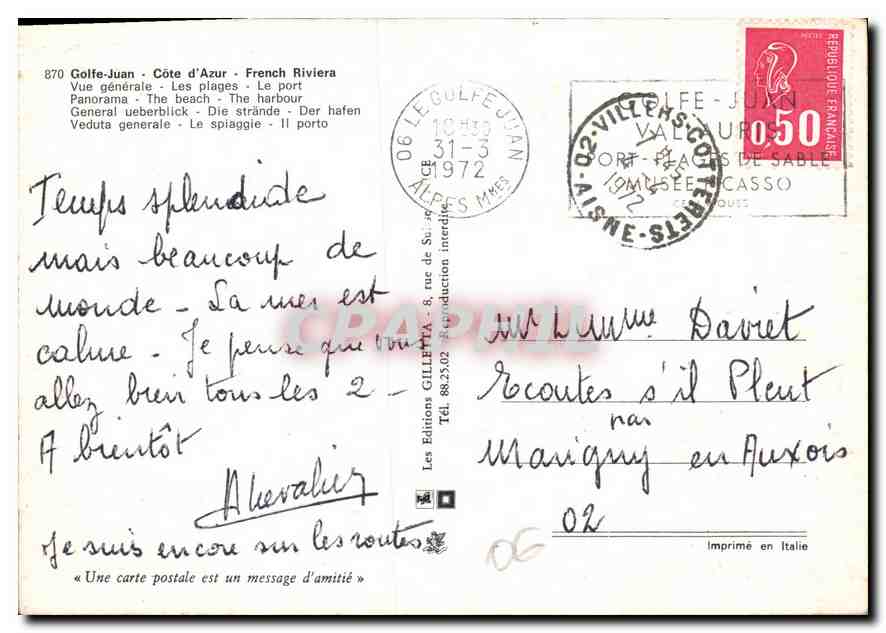 870 Golfe-Juan - Côte d'Azur - French Riviera
Vue générale - Les plages - Le port
Panorama - The beach - The harbour
General ueberblick - Die strände - Der hafen
Veduta generale - Le spiaggie - Il porto
Temps splendide
mais beaucoup de
monde - La mer est
calme - Je pense que vous
allez bien tous les 2 -
A bientôt
AChevalier
Je suis encore sur les routes
« Une carte postale est un message d'amitié »
Les Editions GILLETTA - 8, rue de Suisse
Tél. 88.25.02 - Reproduction interdite
06 LE GOLFE JUAN
18H30
31-3
1972
ALPES Mmes
GOLFE-JUAN
VALLAURIS
PORT-PLAGES DE SABLE
MUSEE PICASSO
02-VILLERS-COTTERETS-AISNE
1972
REPUBLIQUE FRANÇAISE
0,50
Daviet
Ecoutes s'il Pleut
par
Marigny en Auxois
02
06
Imprimé en Italie
CPAPHIL